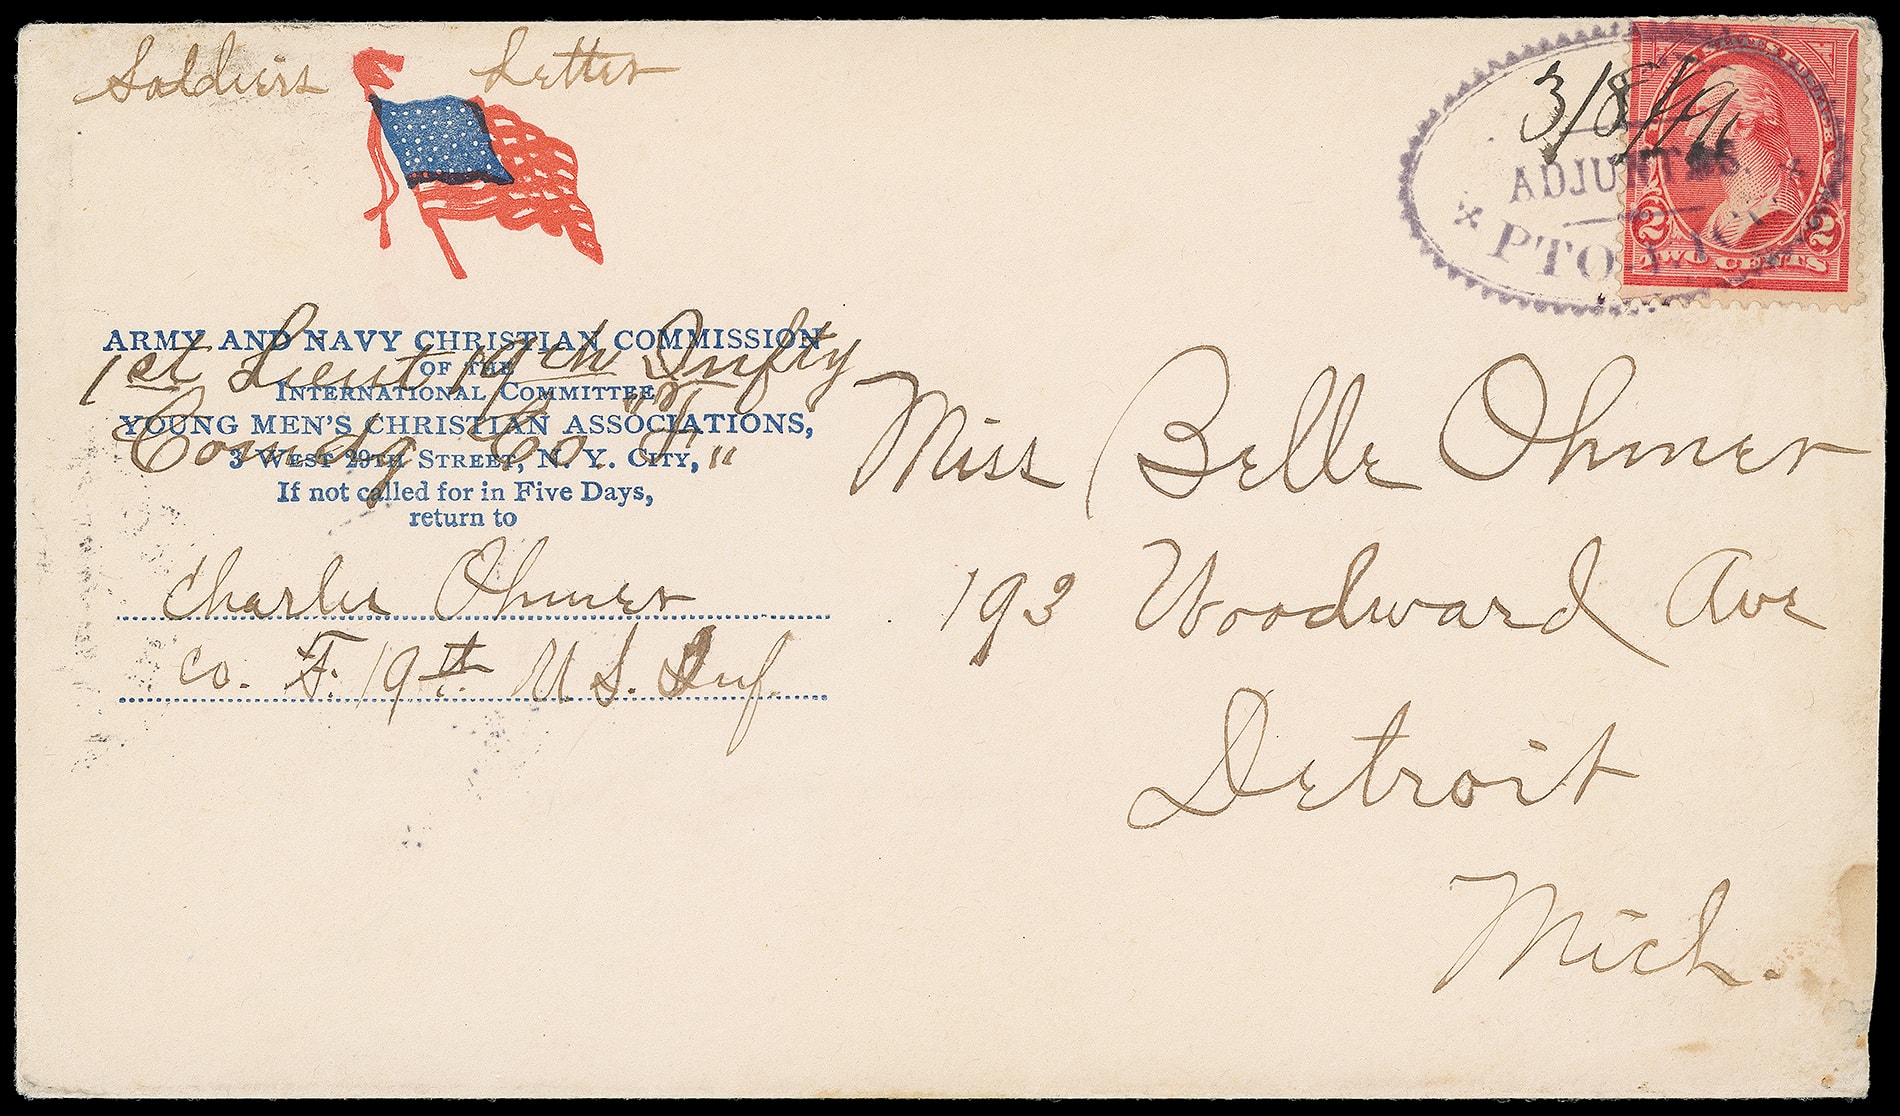 Soldiers Letter
ARMY AND NAVY CHRISTIAN COMMISSION
OF THE
INTERNATIONAL COMMITTEE
YOUNG MEN'S CHRISTIAN ASSOCIATIONS,
3 WEST 29TH STREET, N. Y. CITY,
If not called for in Five Days,
return to
1st Lieut 19th Infty
Comdg Co "F"
Charlie Ohmer
Co. F. 19th U S. Inf.
3/8/99
ADJUNTAS.
PTO. RICO.
TWO CENTS
2 2
Miss Belle Ohmer
193 Woodward Ave
Detroit
Mich.